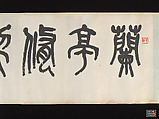 蘭亭脩